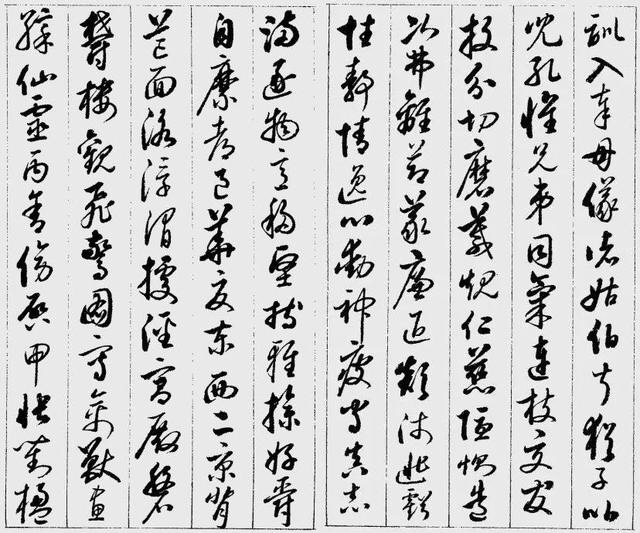 訓入奉母儀諸姑伯叔猶子比
兒孔懷兄弟同氣連枝交友
投分切磨箴規仁慈隱惻造
次弗離節義廉退顛沛匪虧
性靜情逸心動神疲守真志
滿逐物意移堅持雅操好爵
自縻都邑華夏東西二京背
邙面洛浮渭據涇宮殿盤
鬱樓觀飛驚圖寫禽獸畫
綵仙靈丙舍傍啟甲帳對楹